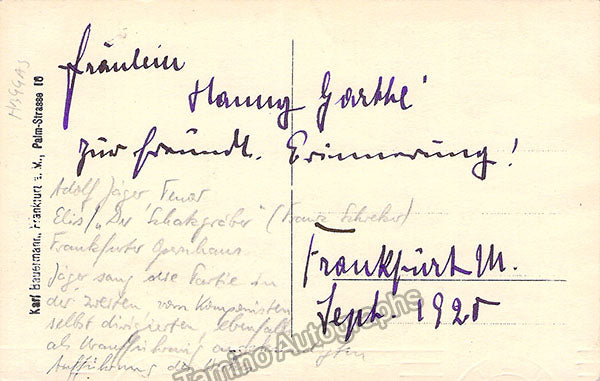 Fräulein
Hanny Garthé
zur freundl. Erinnerung!
Frankfurt M.
Sept. 1920
Adolf Jäger Tenor
Elis / "Der Schatzgräber" (Franz Schreker)
Frankfurter Opernhaus
Jäger sang die Partie in
der zweiten vom Komponisten
selbst dirigierten, ebenfalls
als Uraufführung
Aufführung der
Karl Bauermann, Frankfurt a. M., Palm-Strasse 16
Tamino Autographs